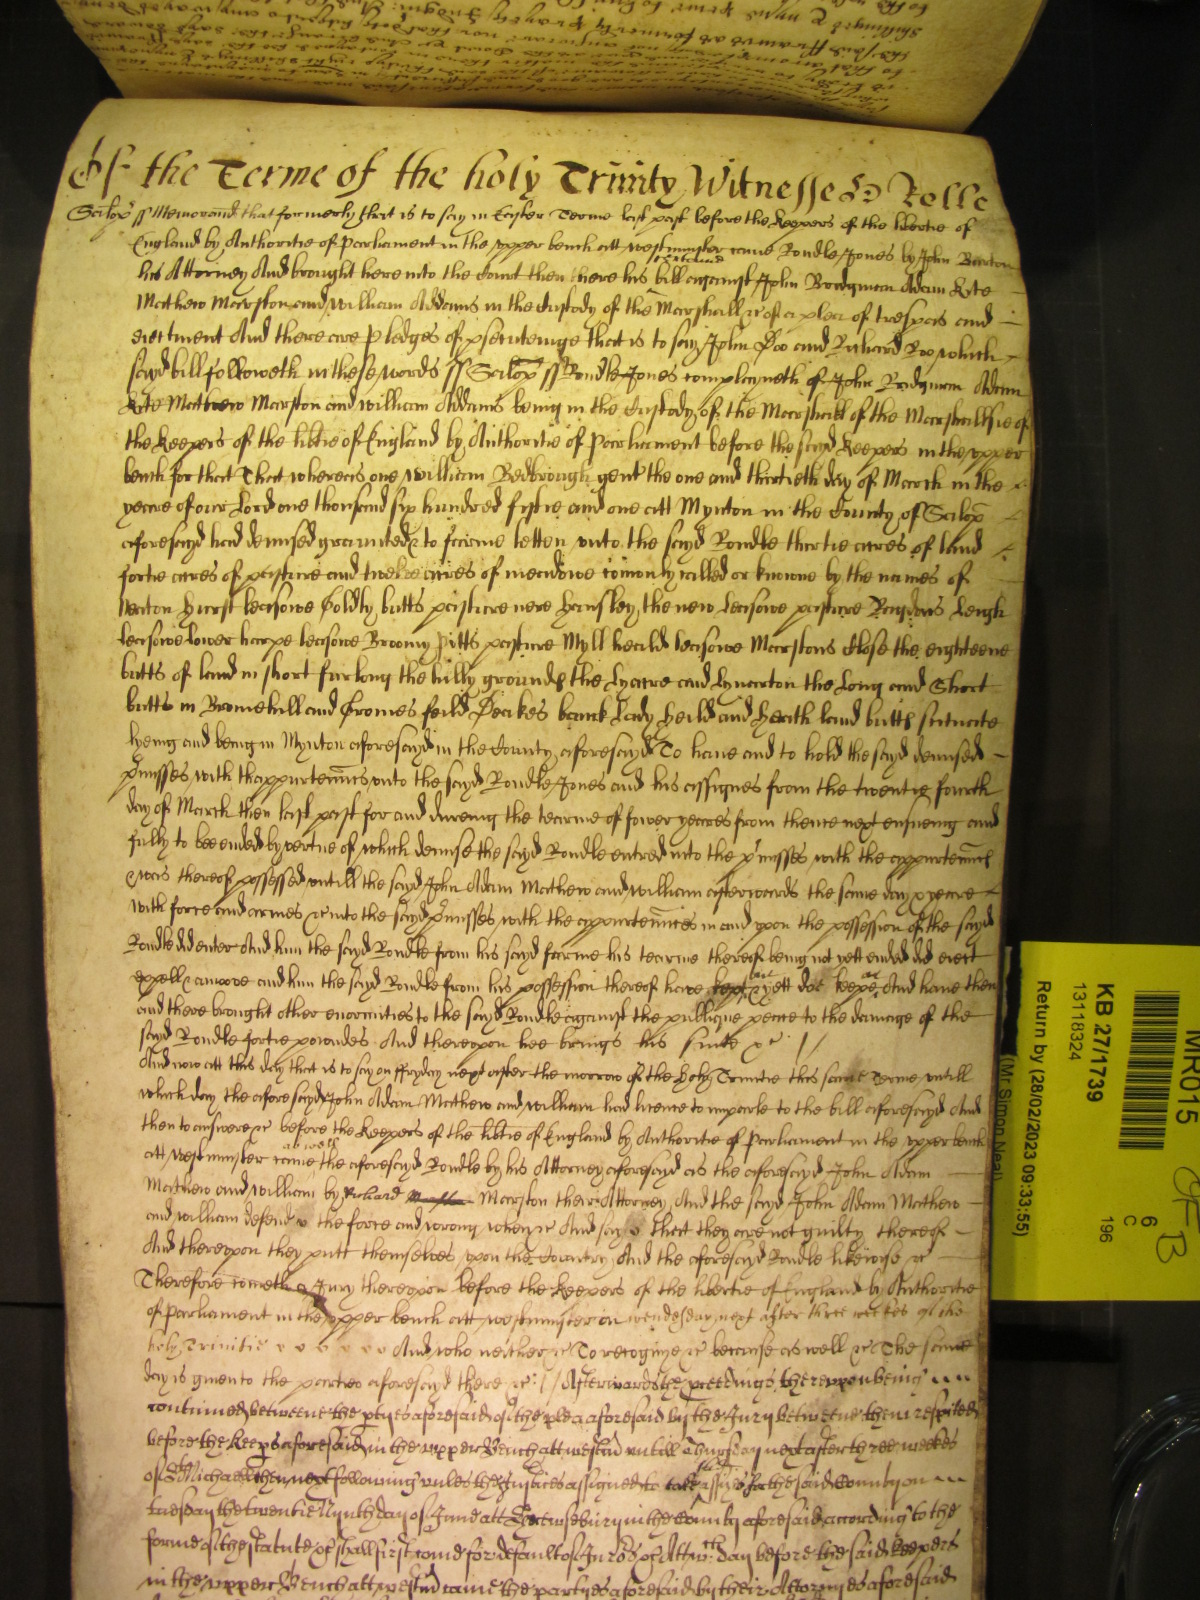 Of the Terme of the holy Trinity Witnesse H Rolle
Salop ss Memorand that formerly that is to say in Easter Terme last past before the Keepers of the libertie of
England by Authoritie of Parliament in the upper bench att Westminster came Rondle Jones by John Barton
his Attorney And brought here into the Court then there his bill against John Bridgman Adam Kite
Mathew Marston and William Addams in the Custody of the Marshall &c of a plea of trespas and
eiectment And there are pledges of psecuteinge that is to say John Doo and Richard Roo which
sayd bill followeth in these words ss Salop ss Rondle Jones complayneth of John Bridgman Adam
Kite Mathew Marston and William Addams being in the Custody of the Marshall of the Marshallsie of
the Keepers of the libtie of England by Authoritie of Parliament before the sayd Keepers in the upper
bench for that That whereas one William Bedbrough gent the one and thirtieth day of March in the
yeare of our Lord one thousand six hundred fiftie and one att Mynton in the County of Salop
aforesayd had demised graunted & to farme letten unto the sayd Rondle thirtie acres of land
fortie acres of pasture and twelve acres of meadowe comonly called or knowne by the names of
hurst leasowe Couldly butts pasture nere Hamsley the new leasowe pasture Leigh
leasowe lower harpe leasowe Broomy Pitts pasture Myll heald leasowe Marstons Close the eighteene
butts of land in short furlong the hilly grounds the Lyare and Lynarton the Long and Short
butts in Bromehill and Cromes feild Deakes banck Lady heild and heath land butts scituate
lyeing and being in Mynton aforesayd in the County aforesayd To have and to hold the sayd demised
pmisses with thappurtennces unto the sayd Rondle Jones and his assignes from the twentie fourth
day of March then last past for and dureing the tearme of fower yeares from thence next ensueing and
fully to bee ended by vertue of which demise the sayd Rondle entred into the pmisses with the appurtennces
& was thereof possessed untill the sayd John Adam Mathew and William afterwards the same day & yeare
with force and armes &c into the sayd pmisses with the appurtennces in and upon the possession of the sayd
Rondle did enter And him the sayd Rondle from his sayd farme his tearme thereof being not yett ended did eiect
expell & amove and him the sayd Rondle from his possession thereof have kept out & yett doe keepe out And have then
and there brought other enormities to the sayd Rondle against the publique peace to the damage of the
sayd Rondle fortie poundes And thereupon hee brings his suite &c
And now att this day that is to say on ffryday next after the morrow of the holy Trinitie this same Terme untill
which day the aforesayd John Adam Mathew and William had licence to imparle to the bill aforesayd And
then to answere &c before the Keepers of the libtie of England by Authoritie of Parliament in the upper bench
att Westminster came as well the aforesayd Rondle by his Attorney aforesayd as the aforesayd John Adam
Mathew and William by Richard Marston their Attorney And the sayd John Adam Mathew
and William defend the force and wrong when &c And say that they are not guilty thereof
And thereupon they putt themselves upon the Country And the aforesayd Rondle likewise &c
Therefore cometh a Jury thereupon before the Keepers of the libertie of England by Authoritie
of Parliament in the upper bench att Westminster on wendesday next after three weekes of the
holy Trinitie And who neither &c To recognize &c because as well &c The same
day is given to the parties aforesayd there &c Afterwards the pceedings thereupon being
continued betweene the ptyes aforesaid of the plea aforesaid by the Jury betweene them respited
before the Keeps aforesaid in the upper Bench att Westm untill Thursday next after three weekes
of St Michaell then next following unles the Justices assigned to take the assizes for the said County on
tuesday the twentie Nynth day of June att Shrewsbury in the County aforesaid according to the
forme of the statute &c shall first come for default of Jurors &c Att wch day before the said Keepers
in the upper Bench att Westm came the partyes aforesaid by their Attornyes aforesaid
MR015
KB 27/1739
13118324
Return by (28/02/2023 09:33:55)
(Mr Simon Neal)
6
C
196